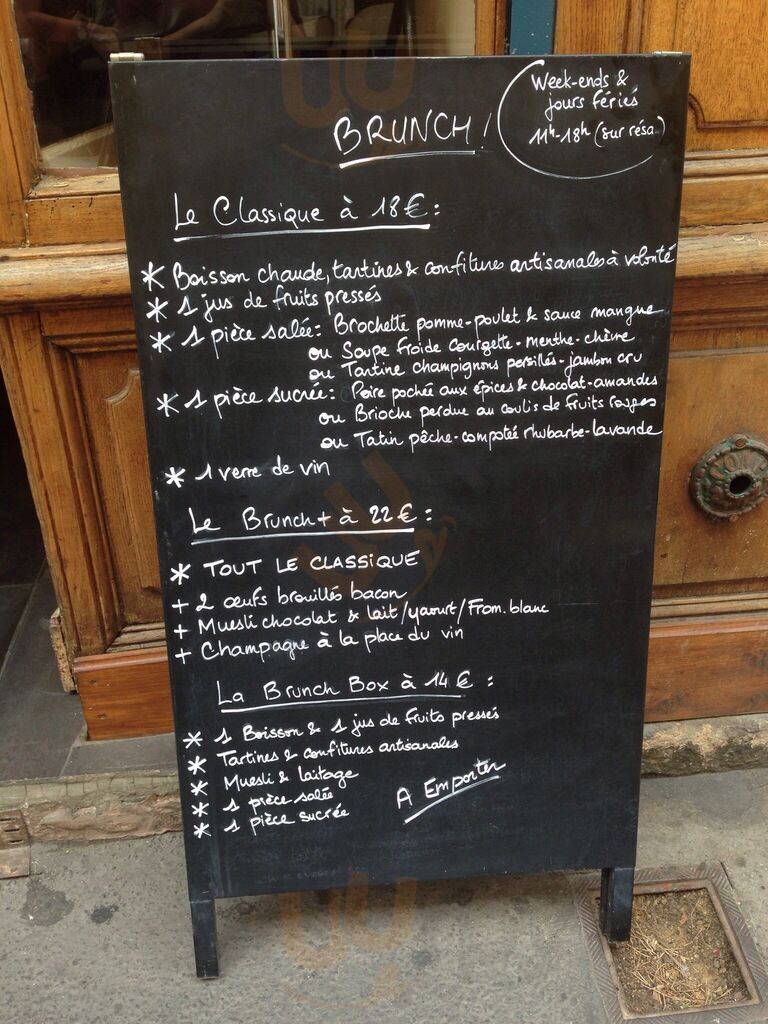 Week-ends &
jours fériés
11h-18h (sur résa.)
BRUNCH !
Le Classique à 18€ :
* Boisson chaude, tartines & confitures artisanales à volonté
* 1 jus de fruits pressés
* 1 pièce salée : Brochette pomme-poulet & sauce mangue
ou Soupe froide courgette-menthe-chèvre
ou Tartine champignons persillés-jambon cru
* 1 pièce sucrée : Poire pochée aux épices & chocolat-amandes
ou Brioche perdue au coulis de fruits rouges
ou Tatin pêche-compotée rhubarbe-lavande
* 1 verre de vin
Le Brunch+ à 22€ :
* TOUT LE CLASSIQUE
+ 2 œufs brouillés bacon
+ Muesli chocolat & lait/yaourt/From. blanc
+ Champagne à la place du vin
La Brunch Box à 14€ :
* 1 Boisson & 1 jus de fruits pressés
* Tartines & confitures artisanales
* Muesli & laitage
* 1 pièce salée
* 1 pièce sucrée
A Emporter